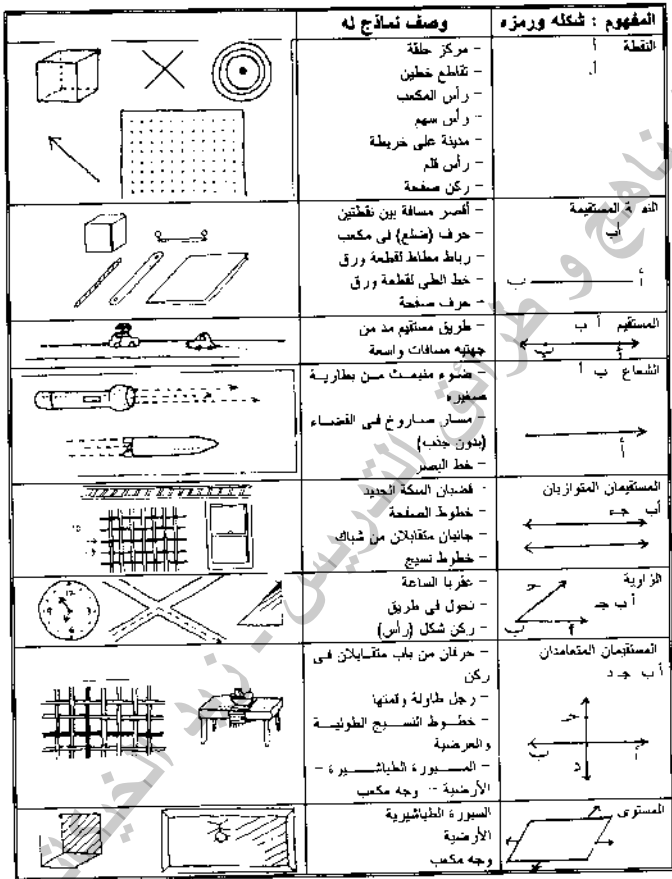 المفهوم : شكله ورمزه
وصف نماذج له
النقطة أ
أ.
– مركز حلقة
– تقاطع خطين
– رأس المكعب
– رأس سهم
– مدينة على خريطة
– رأس قلم
– ركن صفحة
المستقيمة
أب
أ ب
– أقصر مسافة بين نقطتين
– حرف (ضلع) في مكعب
– رباط مطاط لقطعة ورق
– خط الطي لقطعة ورق
– حرف صفحة
المستقيم أ ب
أ ب
– طريق مستقيم مد من
جهتيه مسافات واسعة
الشعاع ب أ
أ
– ضوء منبعث من بطارية
صغيرة
– مسار صاروخ في الفضاء
(بدون جذب)
– خط البصر
المستقيمان المتوازيان
أب جـ
قضبان السكة الحديد
– خطوط الصفحة
– جانبان متقابلان من شباك
– خطوط نسيج
الزاوية
أ ب جـ
حـ
أ ب
– عقربا الساعة
– تحول في طريق
– ركن شكل (رأس)
المستقيمان المتعامدان
أ ب جـ د
حـ
أ ب
د
– حرفان من باب متقابلان في
ركن
– رجل طاولة وقمتها
– خطوط النسيج الطولية
والعرضية
– السبورة الطباشيرة –
الأرضية – وجه مكعب
المستوى
السبورة الطباشيرية
الأرضية
وجه مكعب
ناهج و طرائق التدريس - زيد الخيكا